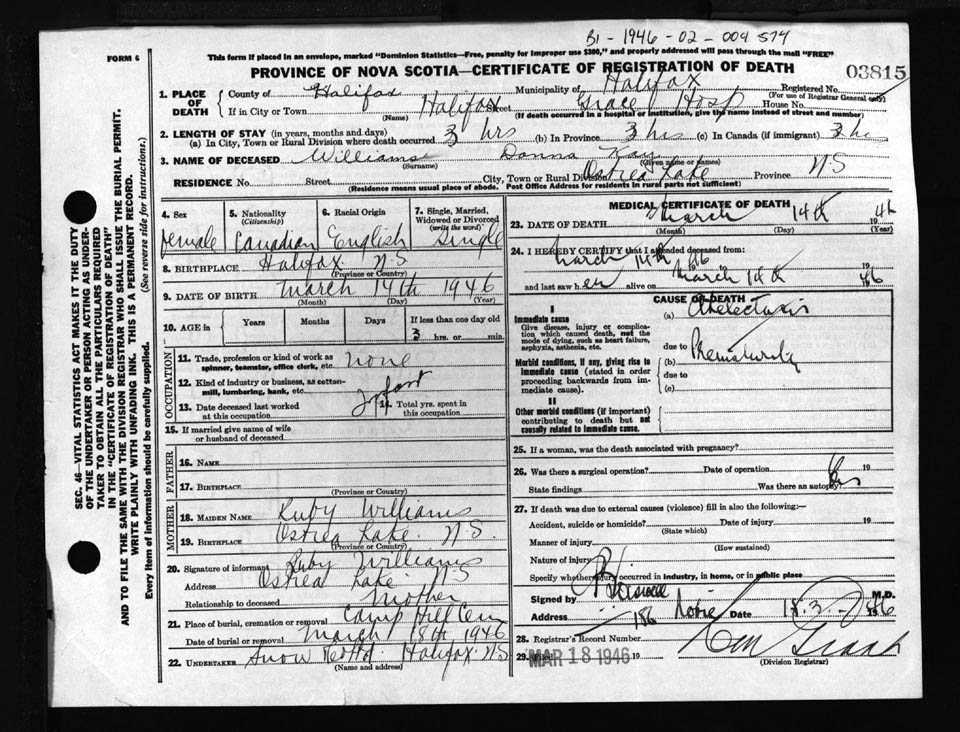 B1 - 1946 - 02 - 004574
This form if placed in an envelope, marked "Dominion Statistics—Free, penalty for improper use $300," and properly addressed will pass through the mail "FREE"
FORM 6
PROVINCE OF NOVA SCOTIA—CERTIFICATE OF REGISTRATION OF DEATH
03815
1. PLACE OF DEATH
County of Halifax Municipality of Halifax Registered No.
(For use of Registrar General only)
If in City or Town Halifax Street Grace Hosp House No.
(Name) (If death occurred in a hospital or institution, give the name instead of street and number)
2. LENGTH OF STAY (in years, months and days)
(a) In City, Town or Rural Division where death occurred 3 hrs (b) In Province 3 hrs (c) In Canada (if immigrant) 3 hr
3. NAME OF DECEASED Williams Donna Kay
(Surname) (Given name or names)
RESIDENCE No. Street City, Town or Rural Division Ostrea Lake Province N S
(Residence means usual place of abode. Post Office Address for residents in rural parts not sufficient)
4. Sex
female
5. Nationality
(Citizenship)
Canadian
6. Racial Origin
English
7. Single, Married, Widowed or Divorced
(write the word)
Single
8. BIRTHPLACE Halifax N S
(Province or Country)
9. DATE OF BIRTH March 14th 1946
(Month) (Day) (Year)
10. AGE in
Years Months Days If less than one day old
3 hrs. or min.
OCCUPATION
11. Trade, profession or kind of work as
spinner, teamster, office clerk, etc. none
12. Kind of industry or business, as cotton-
mill, lumbering, bank, etc. Infant
13. Date deceased last worked at this occupation 14. Total yrs. spent in this occupation
15. If married give name of wife
or husband of deceased
FATHER
16. NAME
17. BIRTHPLACE
(Province or Country)
MOTHER
18. MAIDEN NAME Ruby Williams
19. BIRTHPLACE Ostrea Lake N. S.
(Province or Country)
20. Signature of informant Ruby Williams
Address Ostrea Lake N S
Relationship to deceased Mother
21. Place of burial, cremation or removal Camp Hill Cem
Date of burial or removal March 18th 1946
22. UNDERTAKER Snow Halifax N S
(Name and address)
MEDICAL CERTIFICATE OF DEATH
23. DATE OF DEATH March 14th 1946
(Month) (Day) (Year)
24. I HEREBY CERTIFY that I attended deceased from:
March 14th 46
and last saw h er alive on March 14th 1946
CAUSE OF DEATH
I
Immediate cause
Give disease, injury or complica-
tion which caused death, not the
mode of dying, such as heart failure,
asphyxia, asthenia, etc.
(a) Atelectasis
due to
Morbid conditions, if any, giving rise to
immediate cause (stated in order
proceeding backwards from im-
mediate cause).
(b) Prematurity
due to
(c)
II
Other morbid conditions (if important)
contributing to death but not
causally related to immediate cause.
25. If a woman, was the death associated with pregnancy?
26. Was there a surgical operation? Date of operation 19
State findings Was there an autopsy?
27. If death was due to external causes (violence) fill in also the following:—
Accident, suicide or homicide? Date of injury 19
(State which)
Manner of injury
(How sustained)
Nature of injury
Specify whether injury occurred in industry, in home, or in public place
Signed by M.D.
Address 186 Robie Date 18. 3. 1946
28. Registrar's Record Number
29. Filed MAR 18 1946 19
(Division Registrar)
SEC. 46—VITAL STATISTICS ACT MAKES IT THE DUTY
OF THE UNDERTAKER OR PERSON ACTING AS UNDER-
TAKER TO OBTAIN ALL THE PARTICULARS REQUIRED
IN THE "CERTIFICATE OF REGISTRATION OF DEATH"
AND TO FILE THE SAME WITH THE DIVISION REGISTRAR WHO SHALL ISSUE THE BURIAL PERMIT.
WRITE PLAINLY WITH UNFADING INK. THIS IS A PERMANENT RECORD.
Every item of information should be carefully supplied. (See reverse side for instructions.)